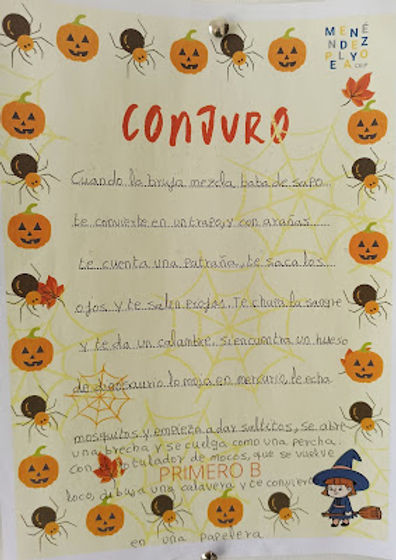 MENÉ
NDEZ
PELAYO
CEIP
CONJURO
Cuando la bruja mezcla baba de sapo
te convierte en un trapo, y con arañas
te cuenta una patraña, te saca los
ojos y te salen piojos. Te chupa la sangre
y te da un calambre, si encuentra un hueso
de dinosaurio lo moja en mercurio, te echa
mosquitos y empieza a dar saltitos, se abre
una brecha y se cuelga como una percha.
con rotulador de mocos, que se vuelve
PRIMERO B
loco, dibuja una calavera y te convierte
en una papelera